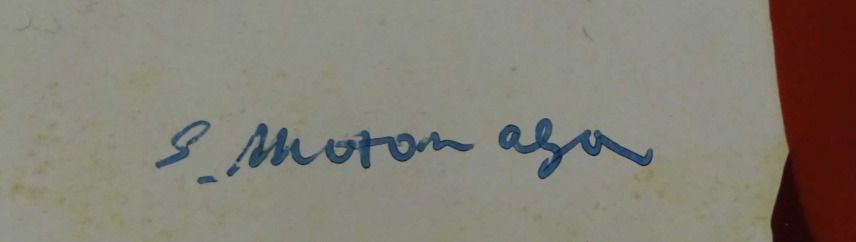 S. Motonaga